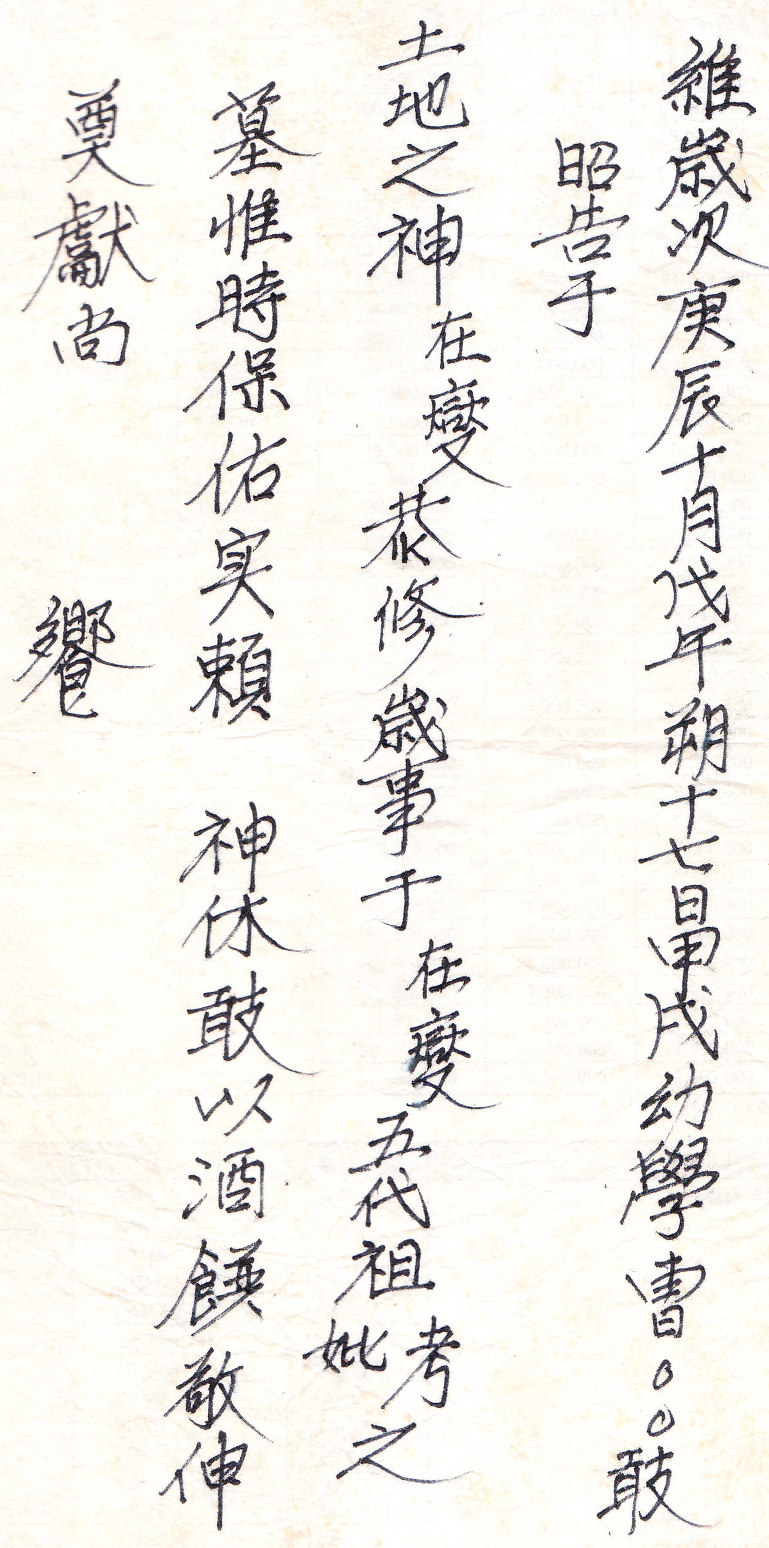 維歳次庚辰十月戊午朔十七日甲戌幼學曺○○敢
昭告于
土地之神 在燮 恭修歳事于 在燮 五代祖考妣之
墓惟時保佑実頼 神休敢以酒饌敬伸
奠獻尚 饗